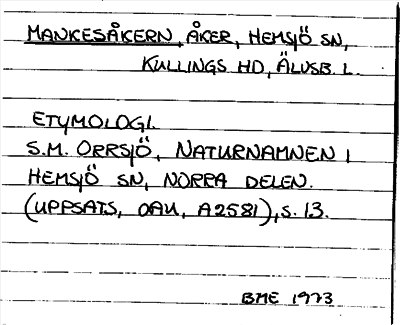 MANKESÅKERN, ÅKER, HEMSJÖ SN,
KULLINGS HD, ÄLVSB. L.
ETYMOLOGI.
S.M. ORRSJÖ, NATURNAMNEN I
HEMSJÖ SN, NORRA DELEN.
(UPPSATS, OAU, A2581), S. 13.
BME 1973